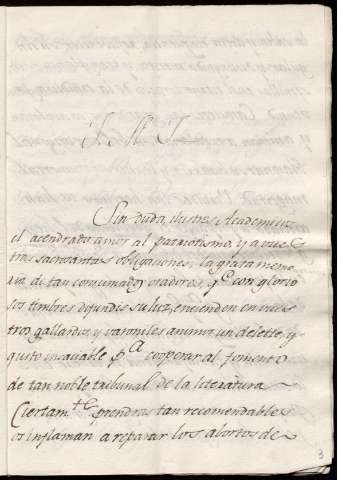 J. M. J.
Sin duda, ilustres Academicos,
el acendrado amor al patriotismo, y a vues
tras sacrosantas obligaciones, la grata memo
ria de tan consumados oradores, qe. con glorio
sos timbres difundis su luz, encienden en vues
tros gallardos, y varoniles animos un deleite, y
gusto insaciable pa. cooperar al fomento
de tan noble tribunal de la literatura
Ciertamte. prendas tan recomendables
os inflaman a reparar los abortos de
3